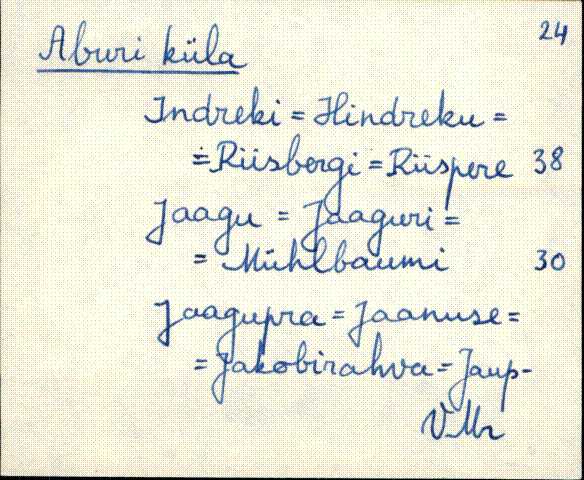 24
Aburi küla
Indreki = Hindreku =
= Riisbergi = Riispere 38
Jaagu = Jaaguri =
= Mühlbaumi 30
Jaagupra = Jaanuse =
= Jakobirahva = Jaup-
VMr